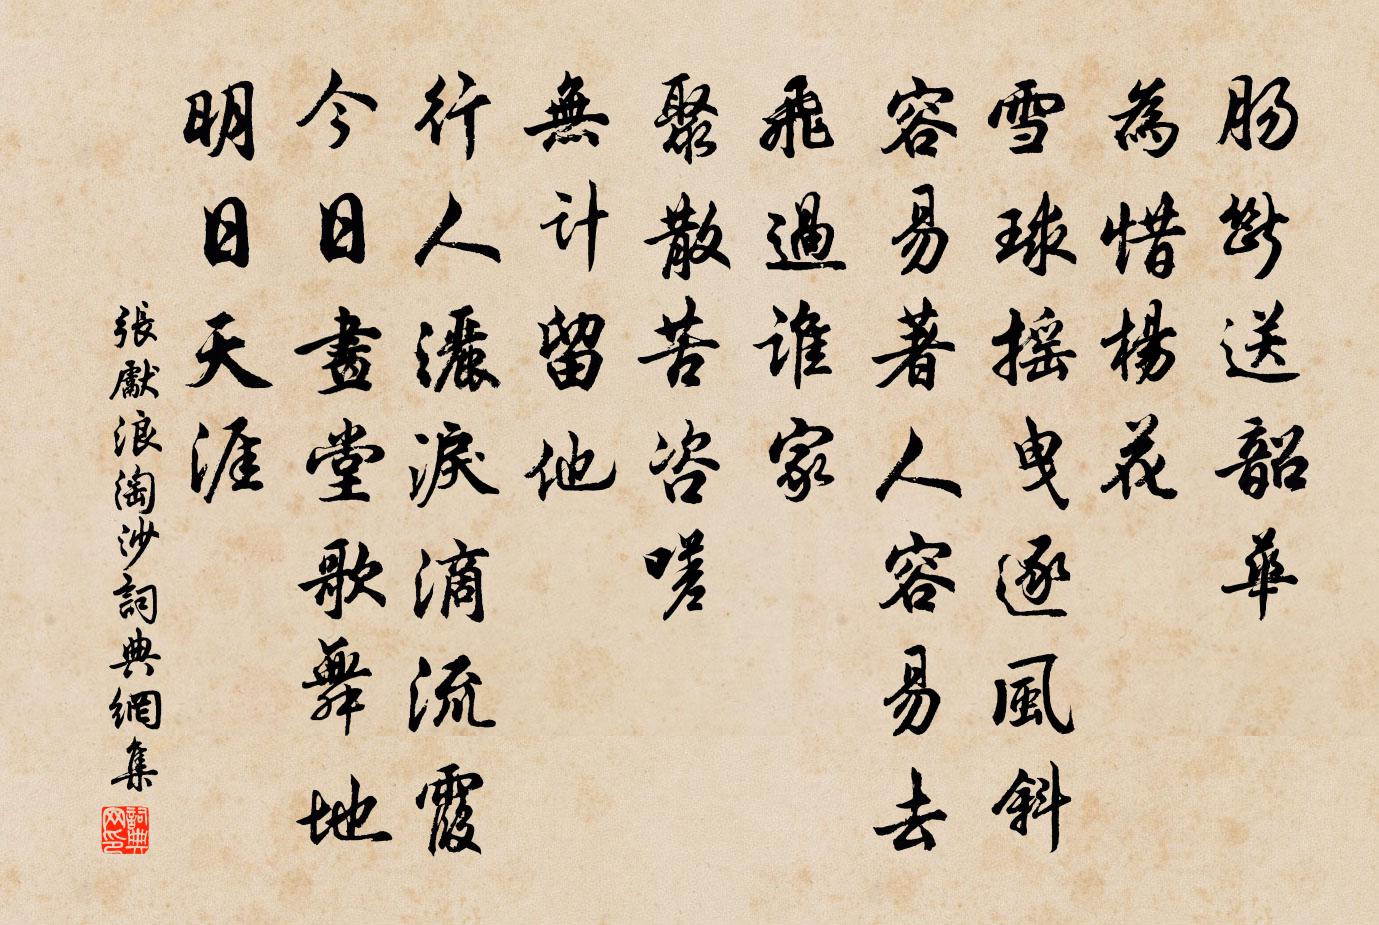 腸斷送韶華
為惜楊花
雪球搖曳逐風斜
容易著人容易去
飛過誰家
聚散苦咨嗟
無計留他
行人灑淚滴流霞
今日畫堂歌舞地
明日天涯
張獻浪淘沙詞典網集
詞典网印